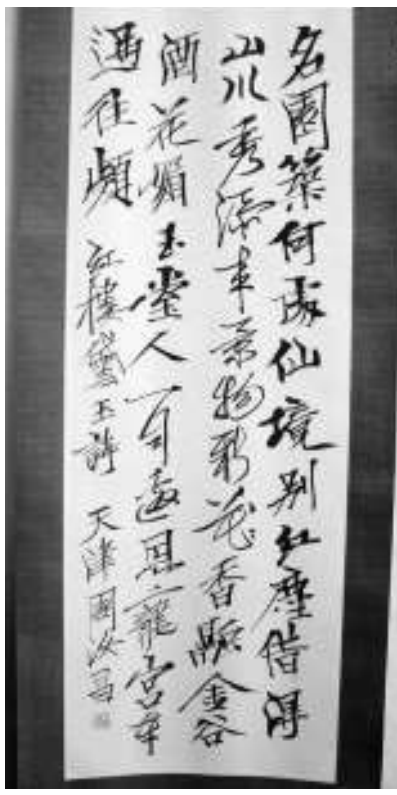 名園築何處仙境別紅塵借得
山川秀添來景物新花香融金谷
酒花媚玉堂人何幸邀恩寵宮車
過往頻 紅樓黛玉詩 天津周汝昌